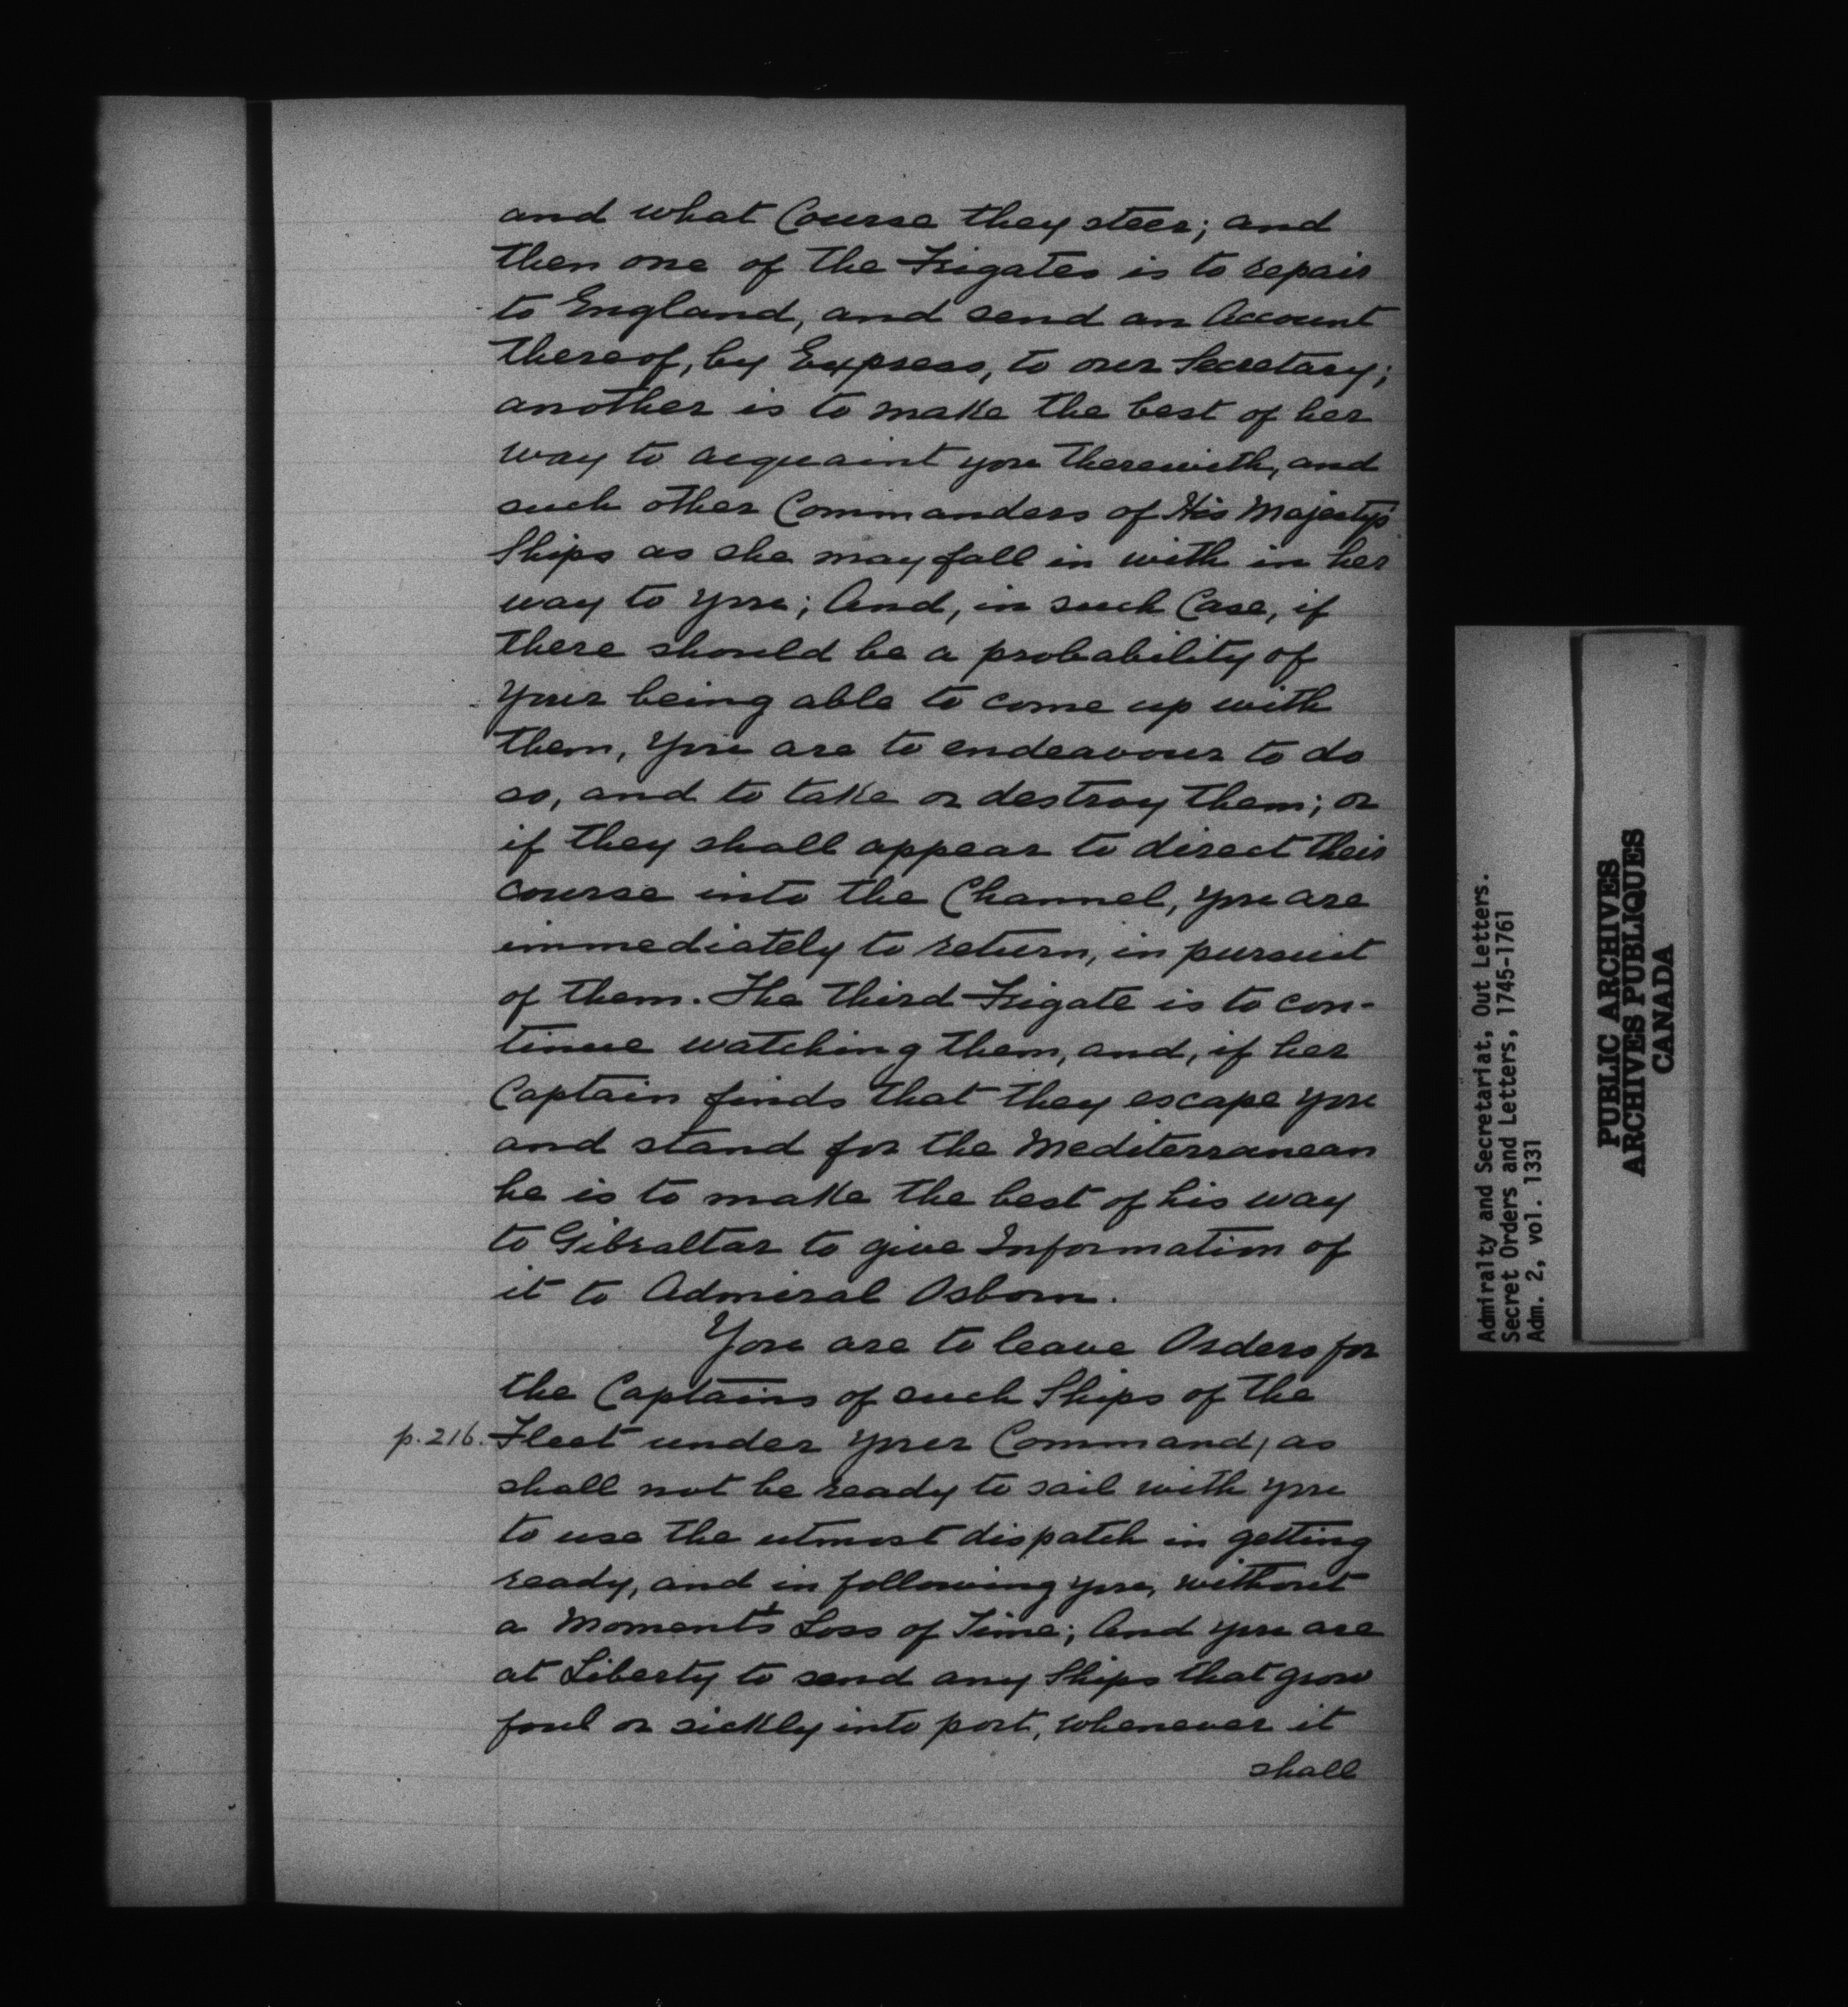 and what Course they steer; and
then one of the Frigates is to repair
to England, and send an Account
thereof, by Express, to our Secretary;
another is to make the best of her
way to acquaint you therewith, and
such other Commanders of His Majesty's
Ships as she may fall in with in her
way to you; And, in such Case, if
there should be a probability of
your being able to come up with
them, you are to endeavour to do
so, and to take or destroy them; or
if they shall appear to direct their
course into the Channel, you are
immediately to return, in pursuit
of them. The third Frigate is to con-
tinue watching them, and, if her
Captain finds that they escape you
and stand for the Mediterranean
he is to make the best of his way
to Gibraltar to give Information of
it to Admiral Osborn.
You are to leave Orders for
the Captains of such Ships of the
p. 216. Fleet under your Command, as
shall not be ready to sail with you
to use the utmost dispatch in getting
ready, and in following you, without
a Moment's Loss of Time; And you are
at Liberty to send any Ships that grow
foul or sickly into port, whenever it
shall
Admiralty and Secretariat, Out Letters.
Secret Orders and Letters, 1745-1761
Adm. 2, vol. 1331
PUBLIC ARCHIVES
ARCHIVES PUBLIQUES
CANADA